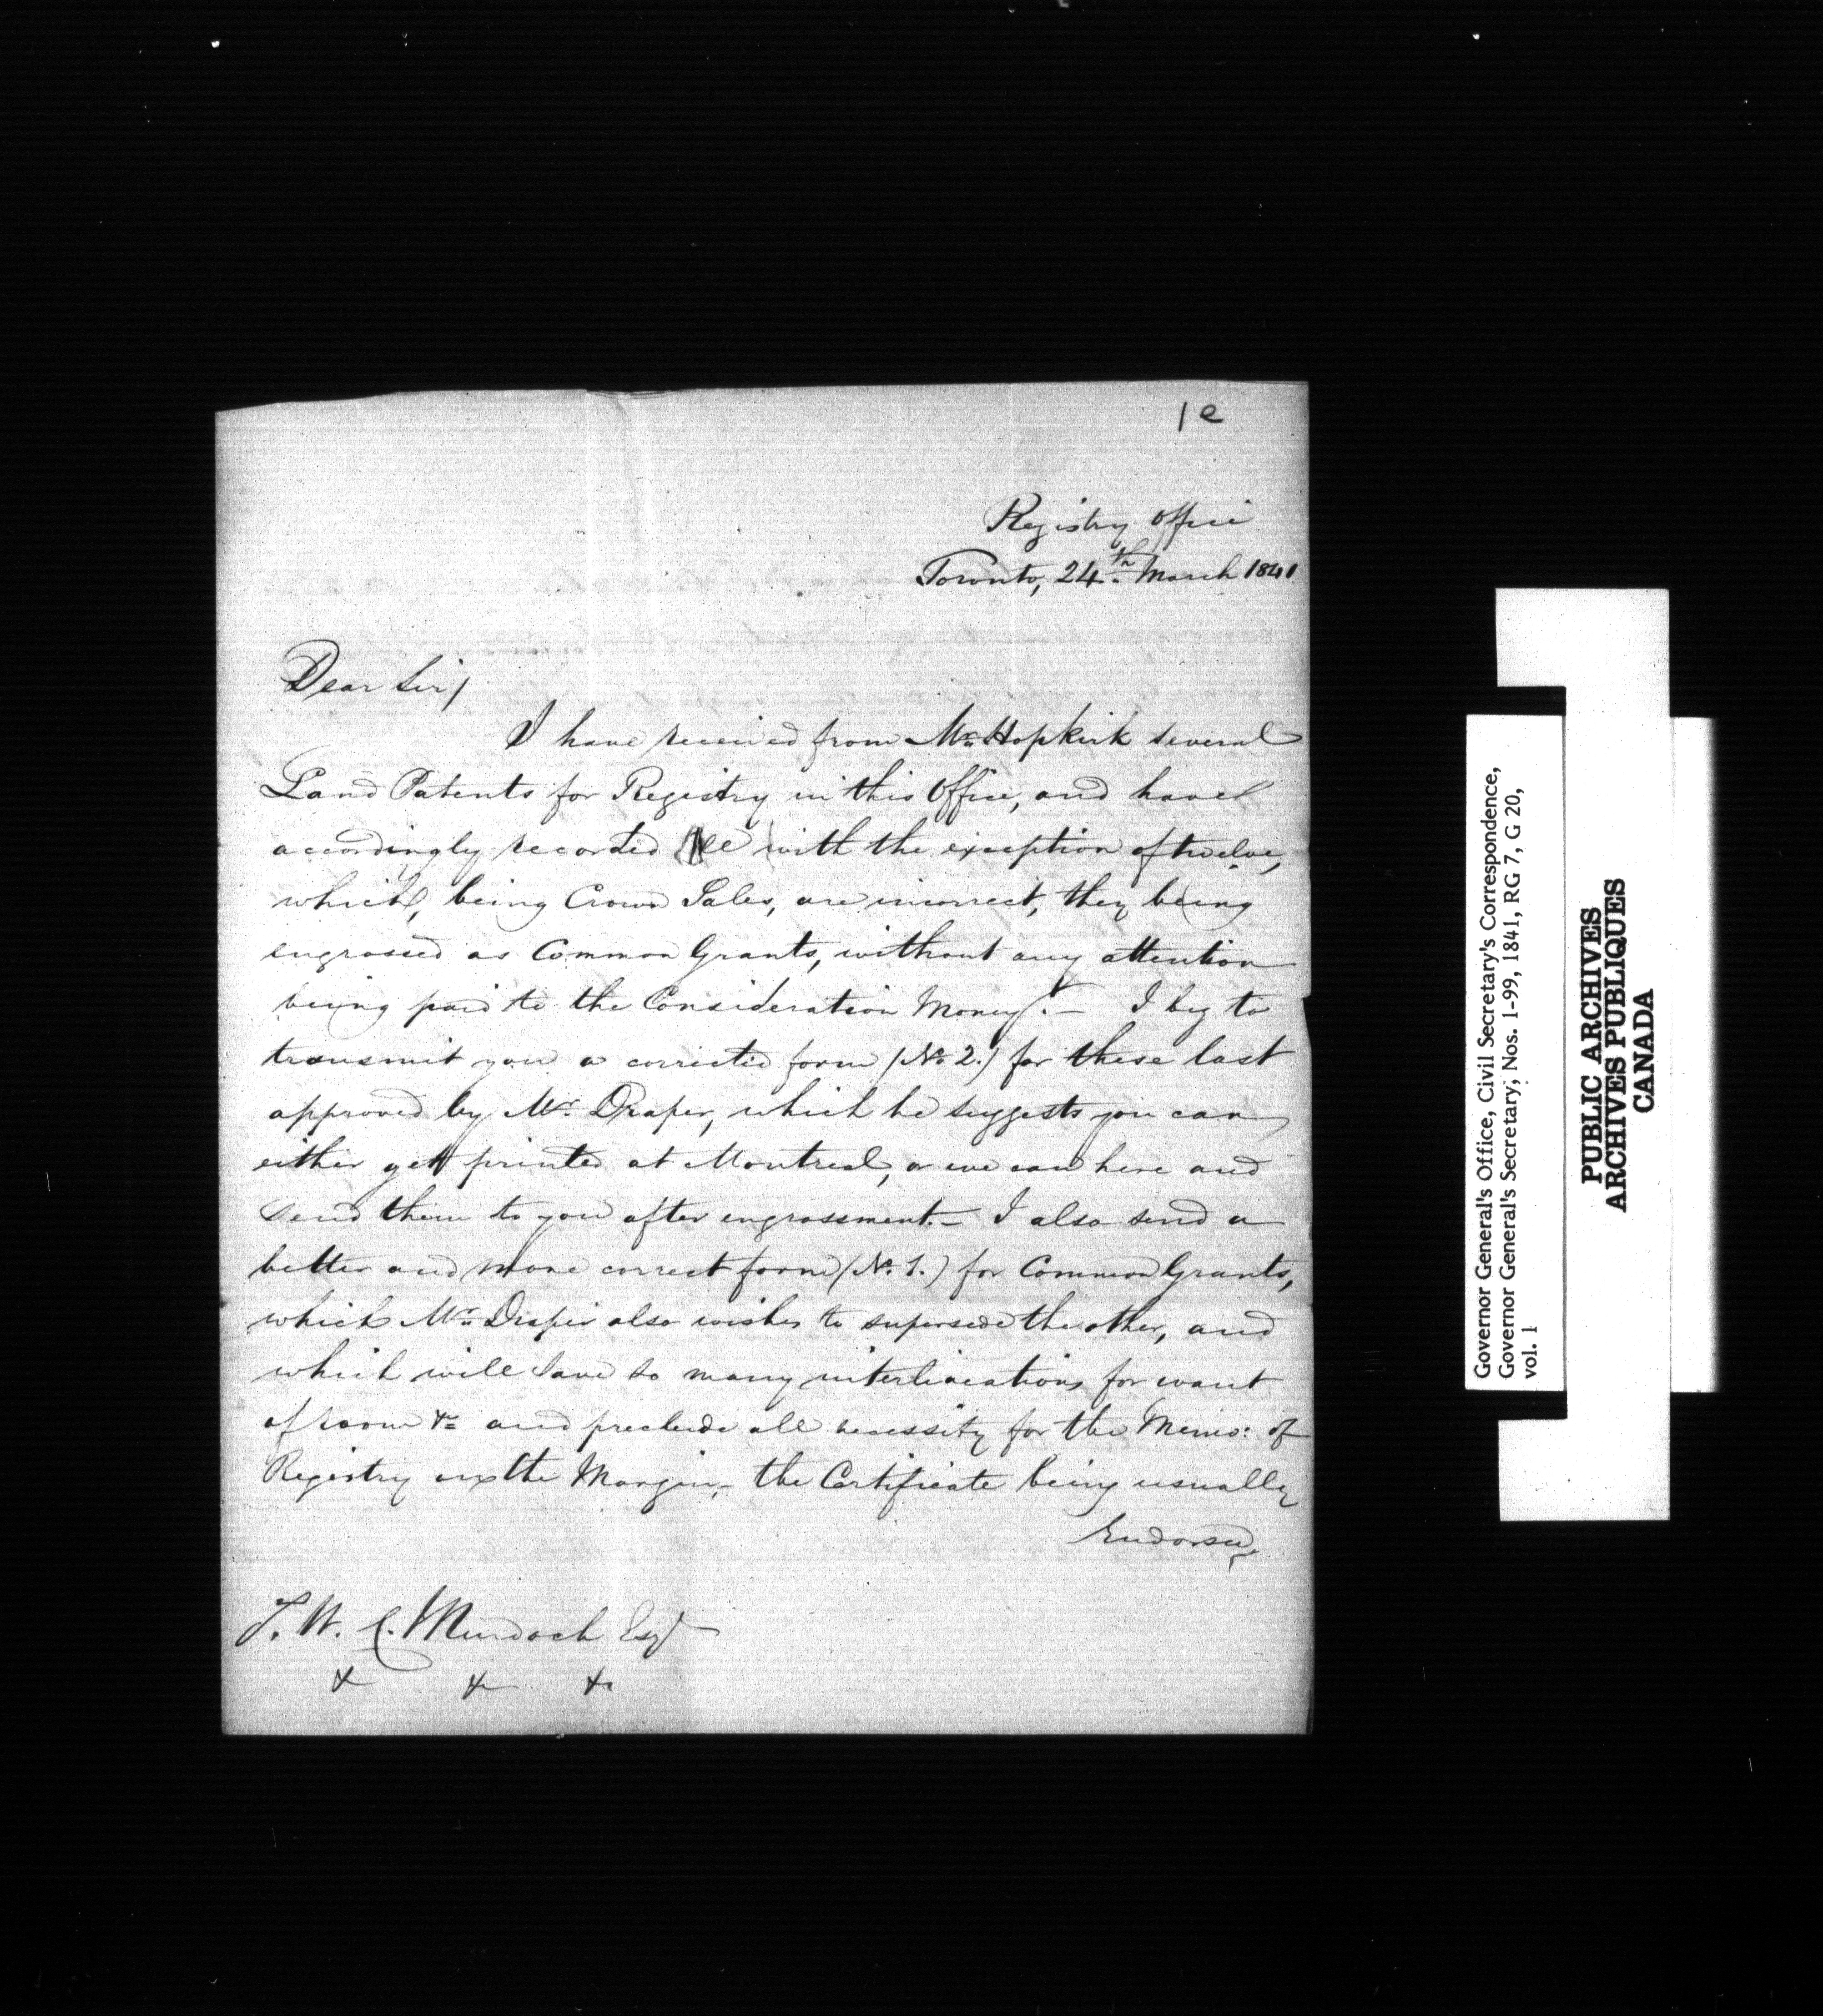 1e
Registry Office
Toronto, 24th March 1841
Dear Sir/
I have received from Mr. Hopkirk several
Land Patents for Registry in this Office, and have
accordingly recorded all with the exception of twelve,
which, being Crown Sales, are incorrect, they being
engrossed as Common Grants, without any attention
being paid to the Consideration Money.— I beg to
transmit you a corrected form (No. 2.) for these last
approved by Mr. Draper, which he suggests you can
either get printed at Montreal, or we can here and
send them to you after engrossment.— I also send a
better and more correct form (No. 1.) for Common Grants,
which Mr. Draper also wishes to supersede the other, and
which will save so many interlineations for want
of room &c and preclude all necessity for the Memo: of
Registry in the Margin,— the Certificate being usually
Endorsed,
T. W. C. Murdoch Esqr
& & &c
Governor General's Office, Civil Secretary's Correspondence,
Governor General's Secretary, Nos. 1-99, 1841, RG 7, G 20,
vol. 1
PUBLIC ARCHIVES
ARCHIVES PUBLIQUES
CANADA